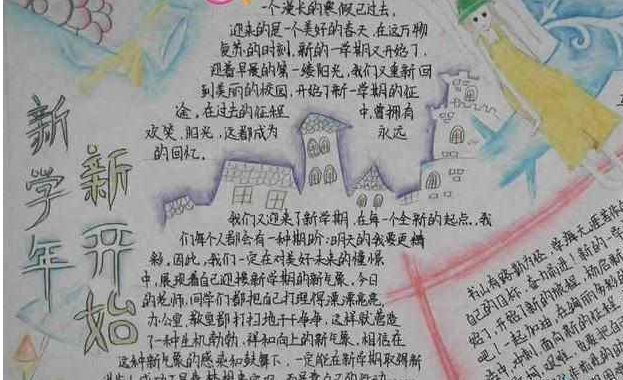 新学年
新开始
一个漫长的寒假已过去,
迎来的是一个美好的春天,在这万物
复苏的时刻,新的一学期又开始了,
迎着早晨的第一缕阳光,我们又重新回
到美丽的校园,开始了新一学期的征
途,在过去的征程中,曾拥有
欢笑,阳光,这都成为永远
的回忆。
我们又迎来了新学期,在每一个全新的起点,我
们每个人都会有一种期盼:明天的我要更精
彩,因此,我们一定在对美好未来的憧憬
中,展现着自己迎接新学期的新气象,今日
的老师,同学们都把自己打理得漂漂亮亮,
办公室,教室都打扫地干干净净,这样就营造
了一种生机勃勃,祥和向上的新气象,相信在
这种新气象的感染和鼓舞下,一定能在新学期取得新
书山有路勤为径,学海无涯苦作
自己的目标,奋力前进!新的一学
始了,开始了新的旅程,扬起新
吧!一起加油,在绚丽多彩的